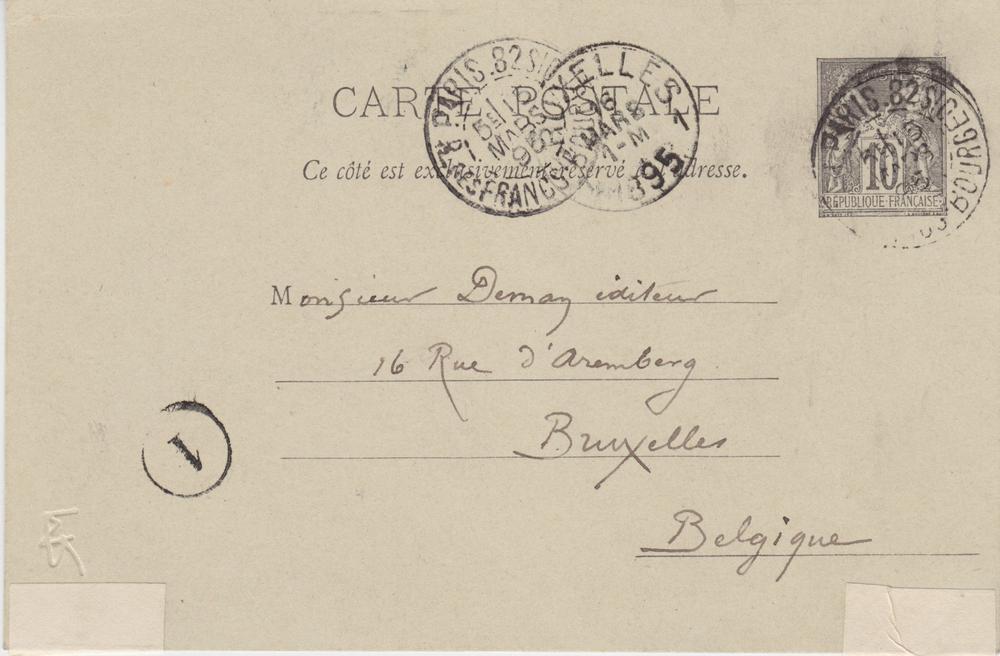 CARTE POSTALE
Ce côté est exclusivement réservé à l'adresse.
PARIS. 82
MARS
BRUXELLES 1
MARS
1-M
1895
PARIS. 82
10
REPUBLIQUE FRANÇAISE
Monsieur Deman éditeur
16 Rue d'Aremberg
Bruxelles
Belgique
1